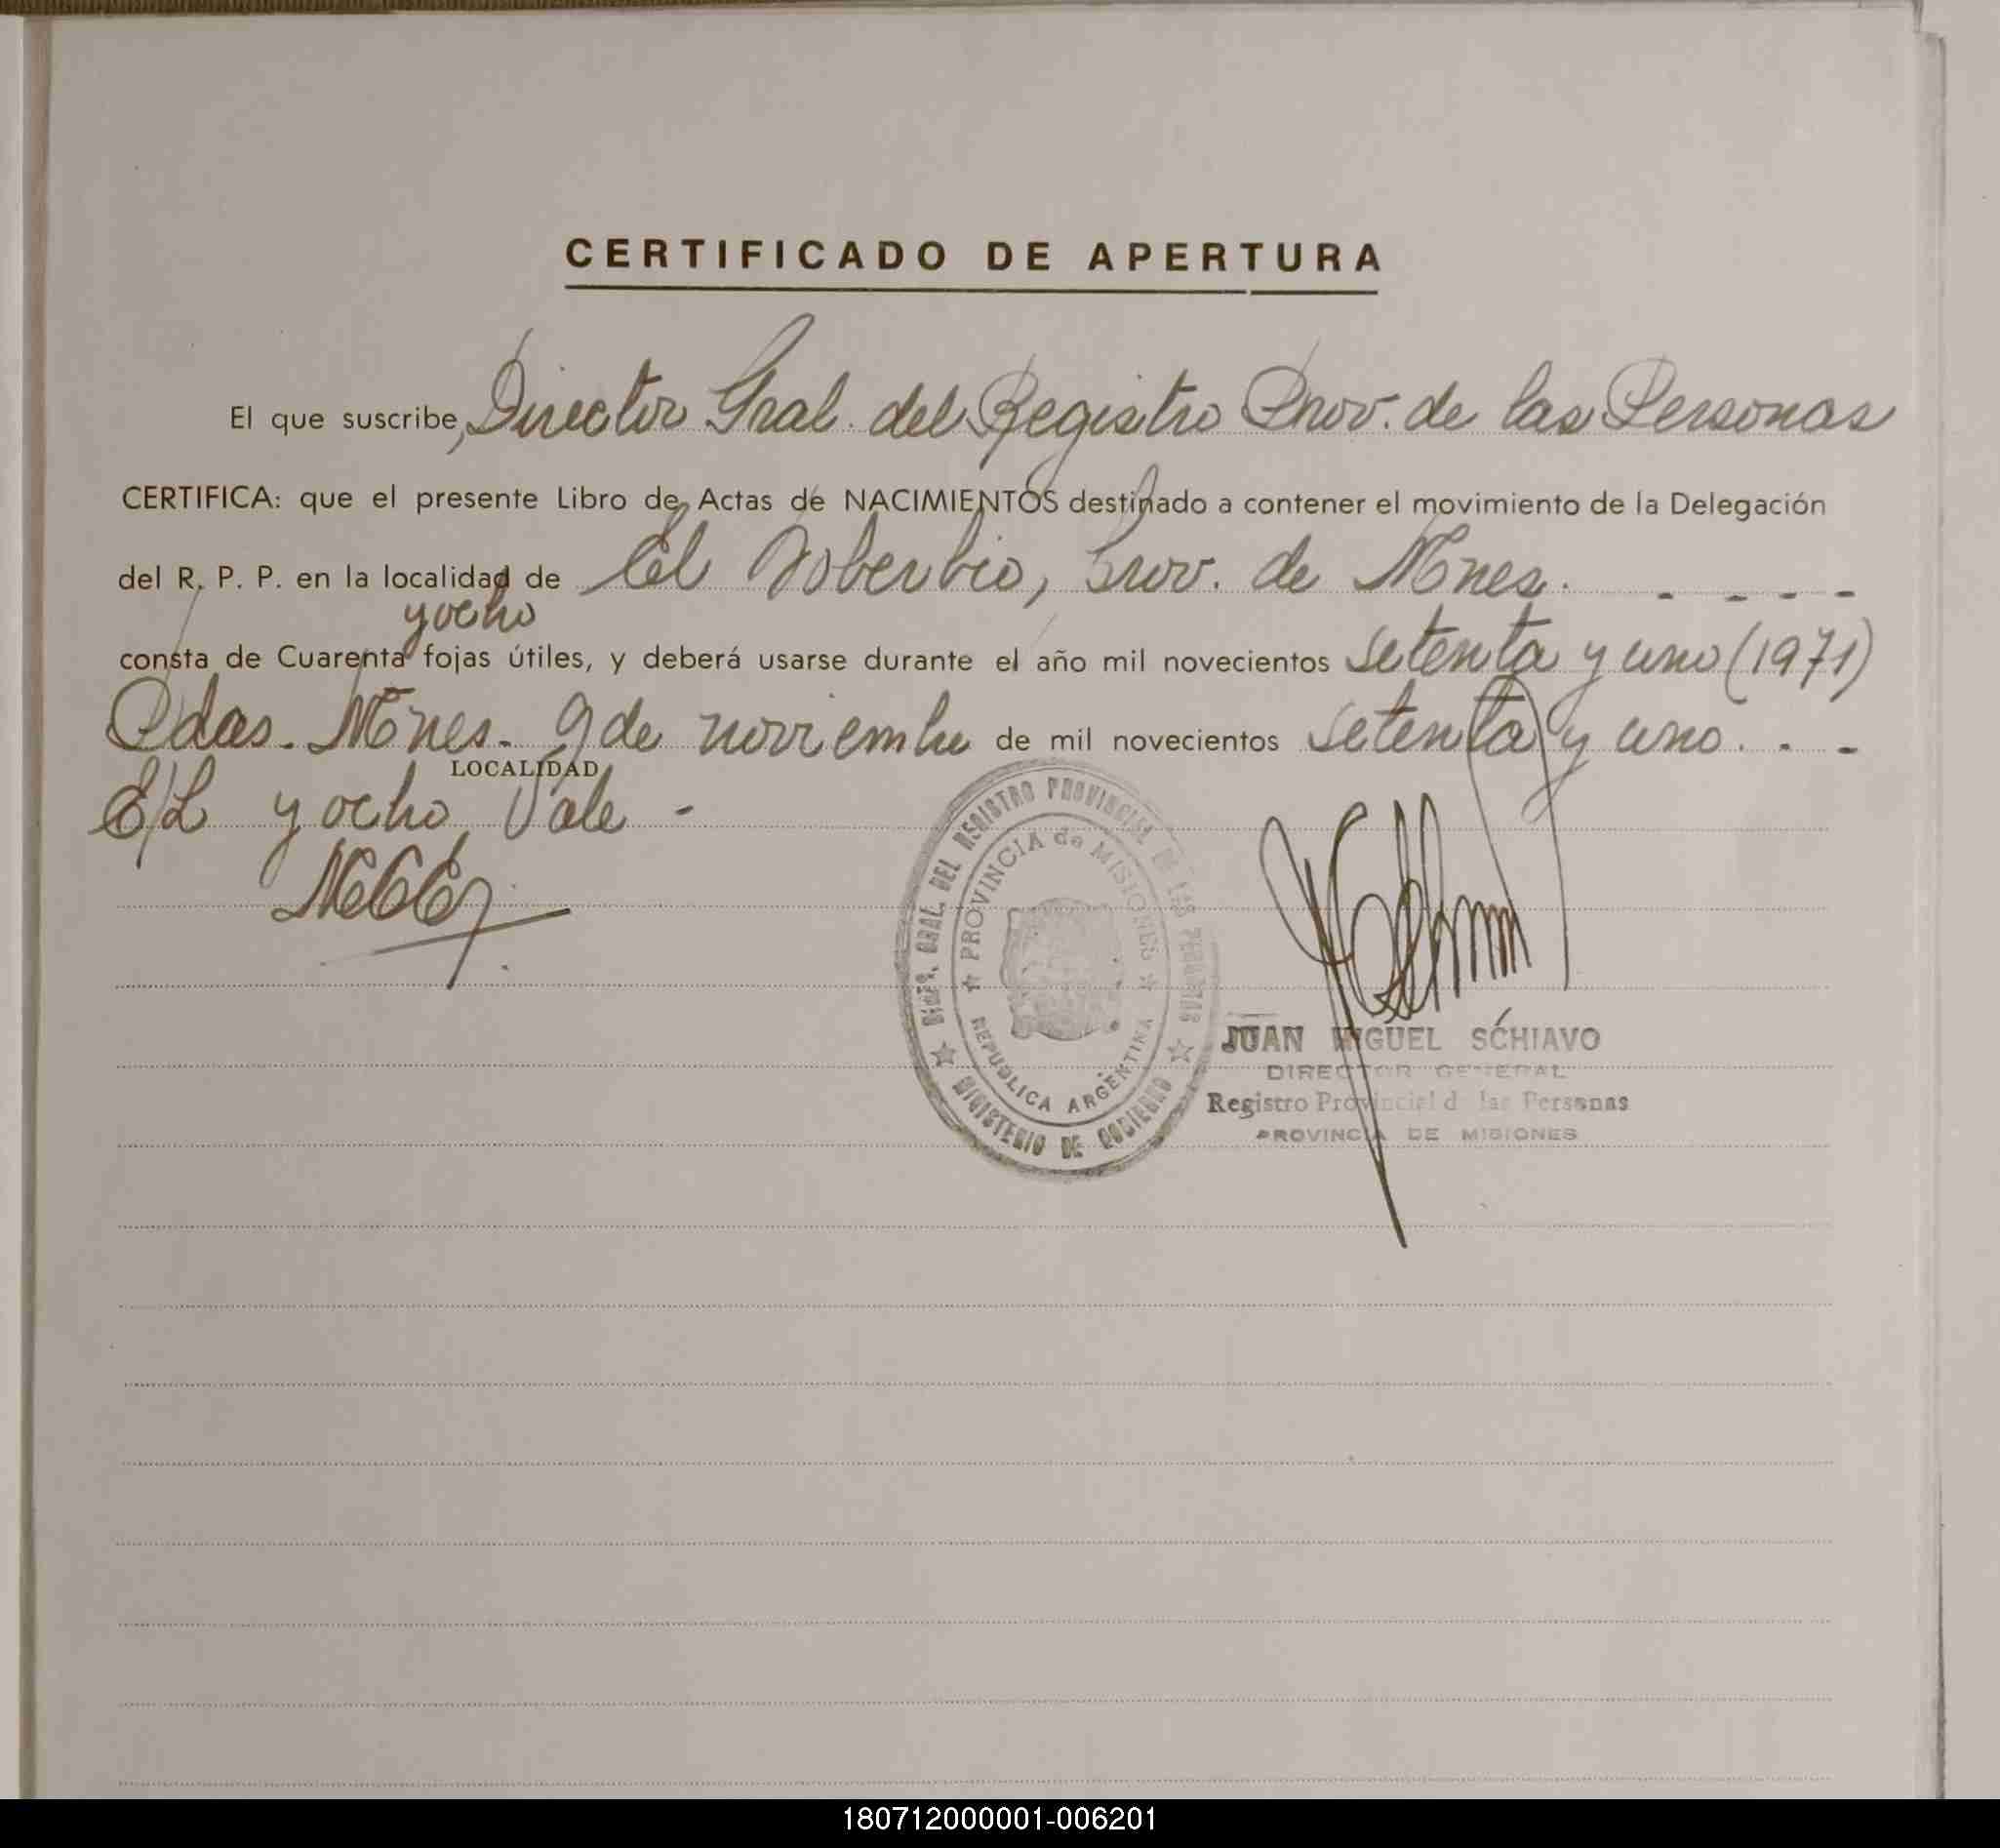 CERTIFICADO DE APERTURA
El que suscribe, Director Gral. del Registro Prov. de las Personas
CERTIFICA: que el presente Libro de Actas de NACIMIENTOS destinado a contener el movimiento de la Delegación
del R. P. P. en la localidad de El Soberbio, Prov. de Mnes. - - - -
y ocho
consta de Cuarenta fojas útiles, y deberá usarse durante el año mil novecientos setenta y uno (1971)
Pdas. Mnes. 9 de noviembre de mil novecientos setenta y uno. - -
LOCALIDAD
E/L y ocho, Vale -
DIREC. GRAL. DEL REGISTRO PROVINCIAL DE LAS PERSONAS
PROVINCIA de MISIONES
REPUBLICA ARGENTINA
MINISTERIO DE GOBIERNO
JUAN MIGUEL SCHIAVO
DIRECTOR GENERAL
Registro Provincial de las Personas
PROVINCIA DE MISIONES
180712000001-006201